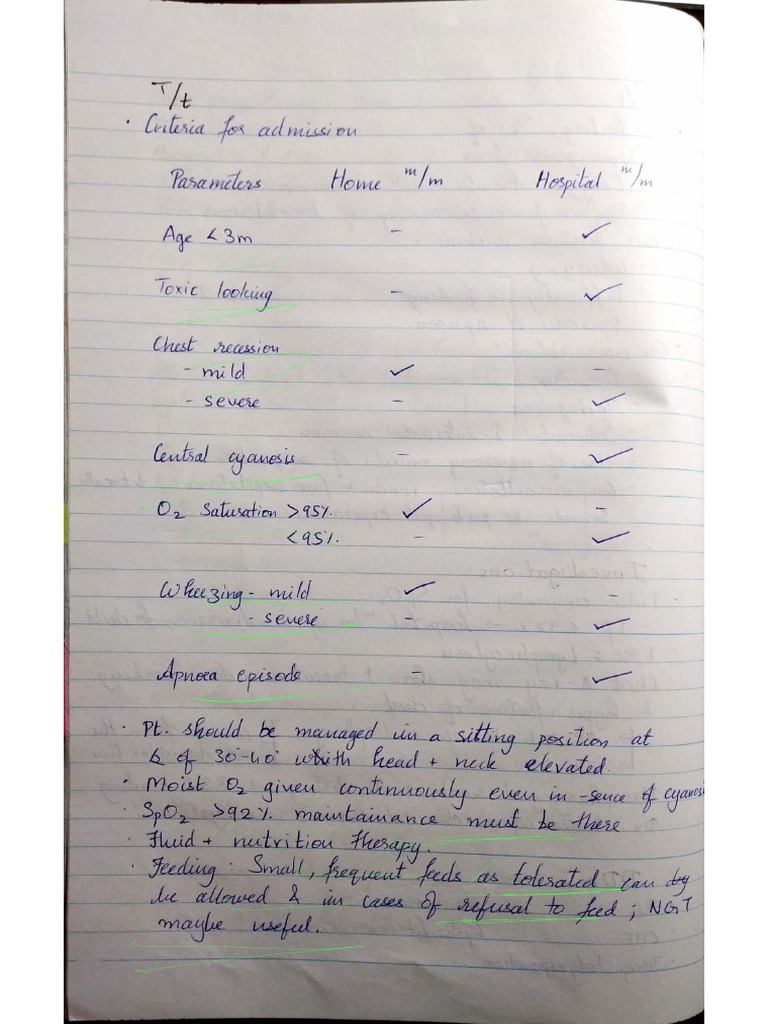 T/t
· Criteria for admission
Parameters Home m/m Hospital m/m
Age < 3m - ✓
Toxic looking - ✓
Chest recession
- mild ✓ -
- severe - ✓
Central cyanosis - ✓
O2 Saturation > 95% ✓ -
< 95% - ✓
Wheezing - mild ✓ -
- severe - ✓
Apnoea episode - ✓
· Pt. should be managed in a sitting position at
∠ of 30°-40° with head + neck elevated.
· Moist O2 given continuously even in -sence of cyanosis
· SpO2 >92% maintainance must be there
· Fluid + nutrition therapy.
· Feeding: Small, frequent feeds as tolerated can by
be allowed & in cases of refusal to feed; NGT
maybe useful.